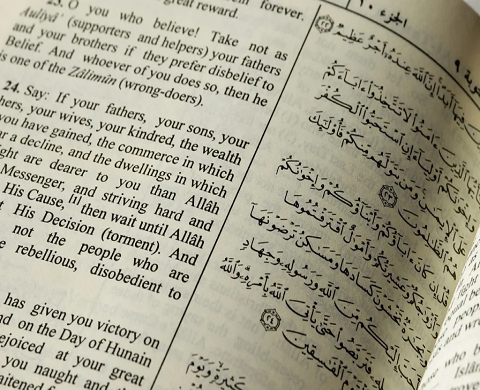 forever.
great reward.
23. O you who believe! Take not as
Auliyâ' (supporters and helpers) your fathers
and your brothers if they prefer disbelief to
Belief. And whoever of you does so, then he
is one of the Zâlimûn (wrong-doers).
24. Say: If your fathers, your sons, your
your wives, your kindred, the wealth
you have gained, the commerce in which
a decline, and the dwellings in which
are dearer to you than Allâh
Messenger, and striving hard and
His Cause, [1] then wait until Allâh
His Decision (torment). And
not the people who are
rebellious, disobedient to
has given you victory on
on the Day of Hunain
rejoiced at your great
you naught and the
الجزء ١٠
٩
فِيهَآ أَبَدًا إِنَّ ٱللَّهَ عِندَهُۥٓ أَجْرٌ عَظِيمٌ
ٱلَّذِينَ ءَامَنُوا۟ لَا تَتَّخِذُوٓا۟ ءَابَآءَكُمْ
وَإِخْوَٰنَكُمْ أَوْلِيَآءَ إِنِ ٱسْتَحَبُّوا۟ ٱلْكُفْرَ
عَلَى ٱلْإِيمَٰنِ وَمَن يَتَوَلَّهُم مِّنكُمْ فَأُو۟لَٰٓئِكَ
هُمُ ٱلظَّٰلِمُونَ
قُلْ إِن كَانَ ءَابَآؤُكُمْ وَأَبْنَآؤُكُمْ وَإِخْوَٰنُكُمْ
وَعَشِيرَتُكُمْ وَأَمْوَٰلٌ ٱقْتَرَفْتُمُوهَا
تَخْشَوْنَ كَسَادَهَا وَمَسَٰكِنُ تَرْضَوْنَهَآ
إِلَيْكُم مِّنَ ٱللَّهِ وَرَسُولِهِۦ وَجِهَادٍ
فَتَرَبَّصُوا۟ حَتَّىٰ يَأْتِىَ ٱللَّهُ بِأَمْرِهِۦ وَٱللَّهُ
ٱلْفَٰسِقِينَ ٢٤
كَثِيرَةٍ وَيَوْمَ